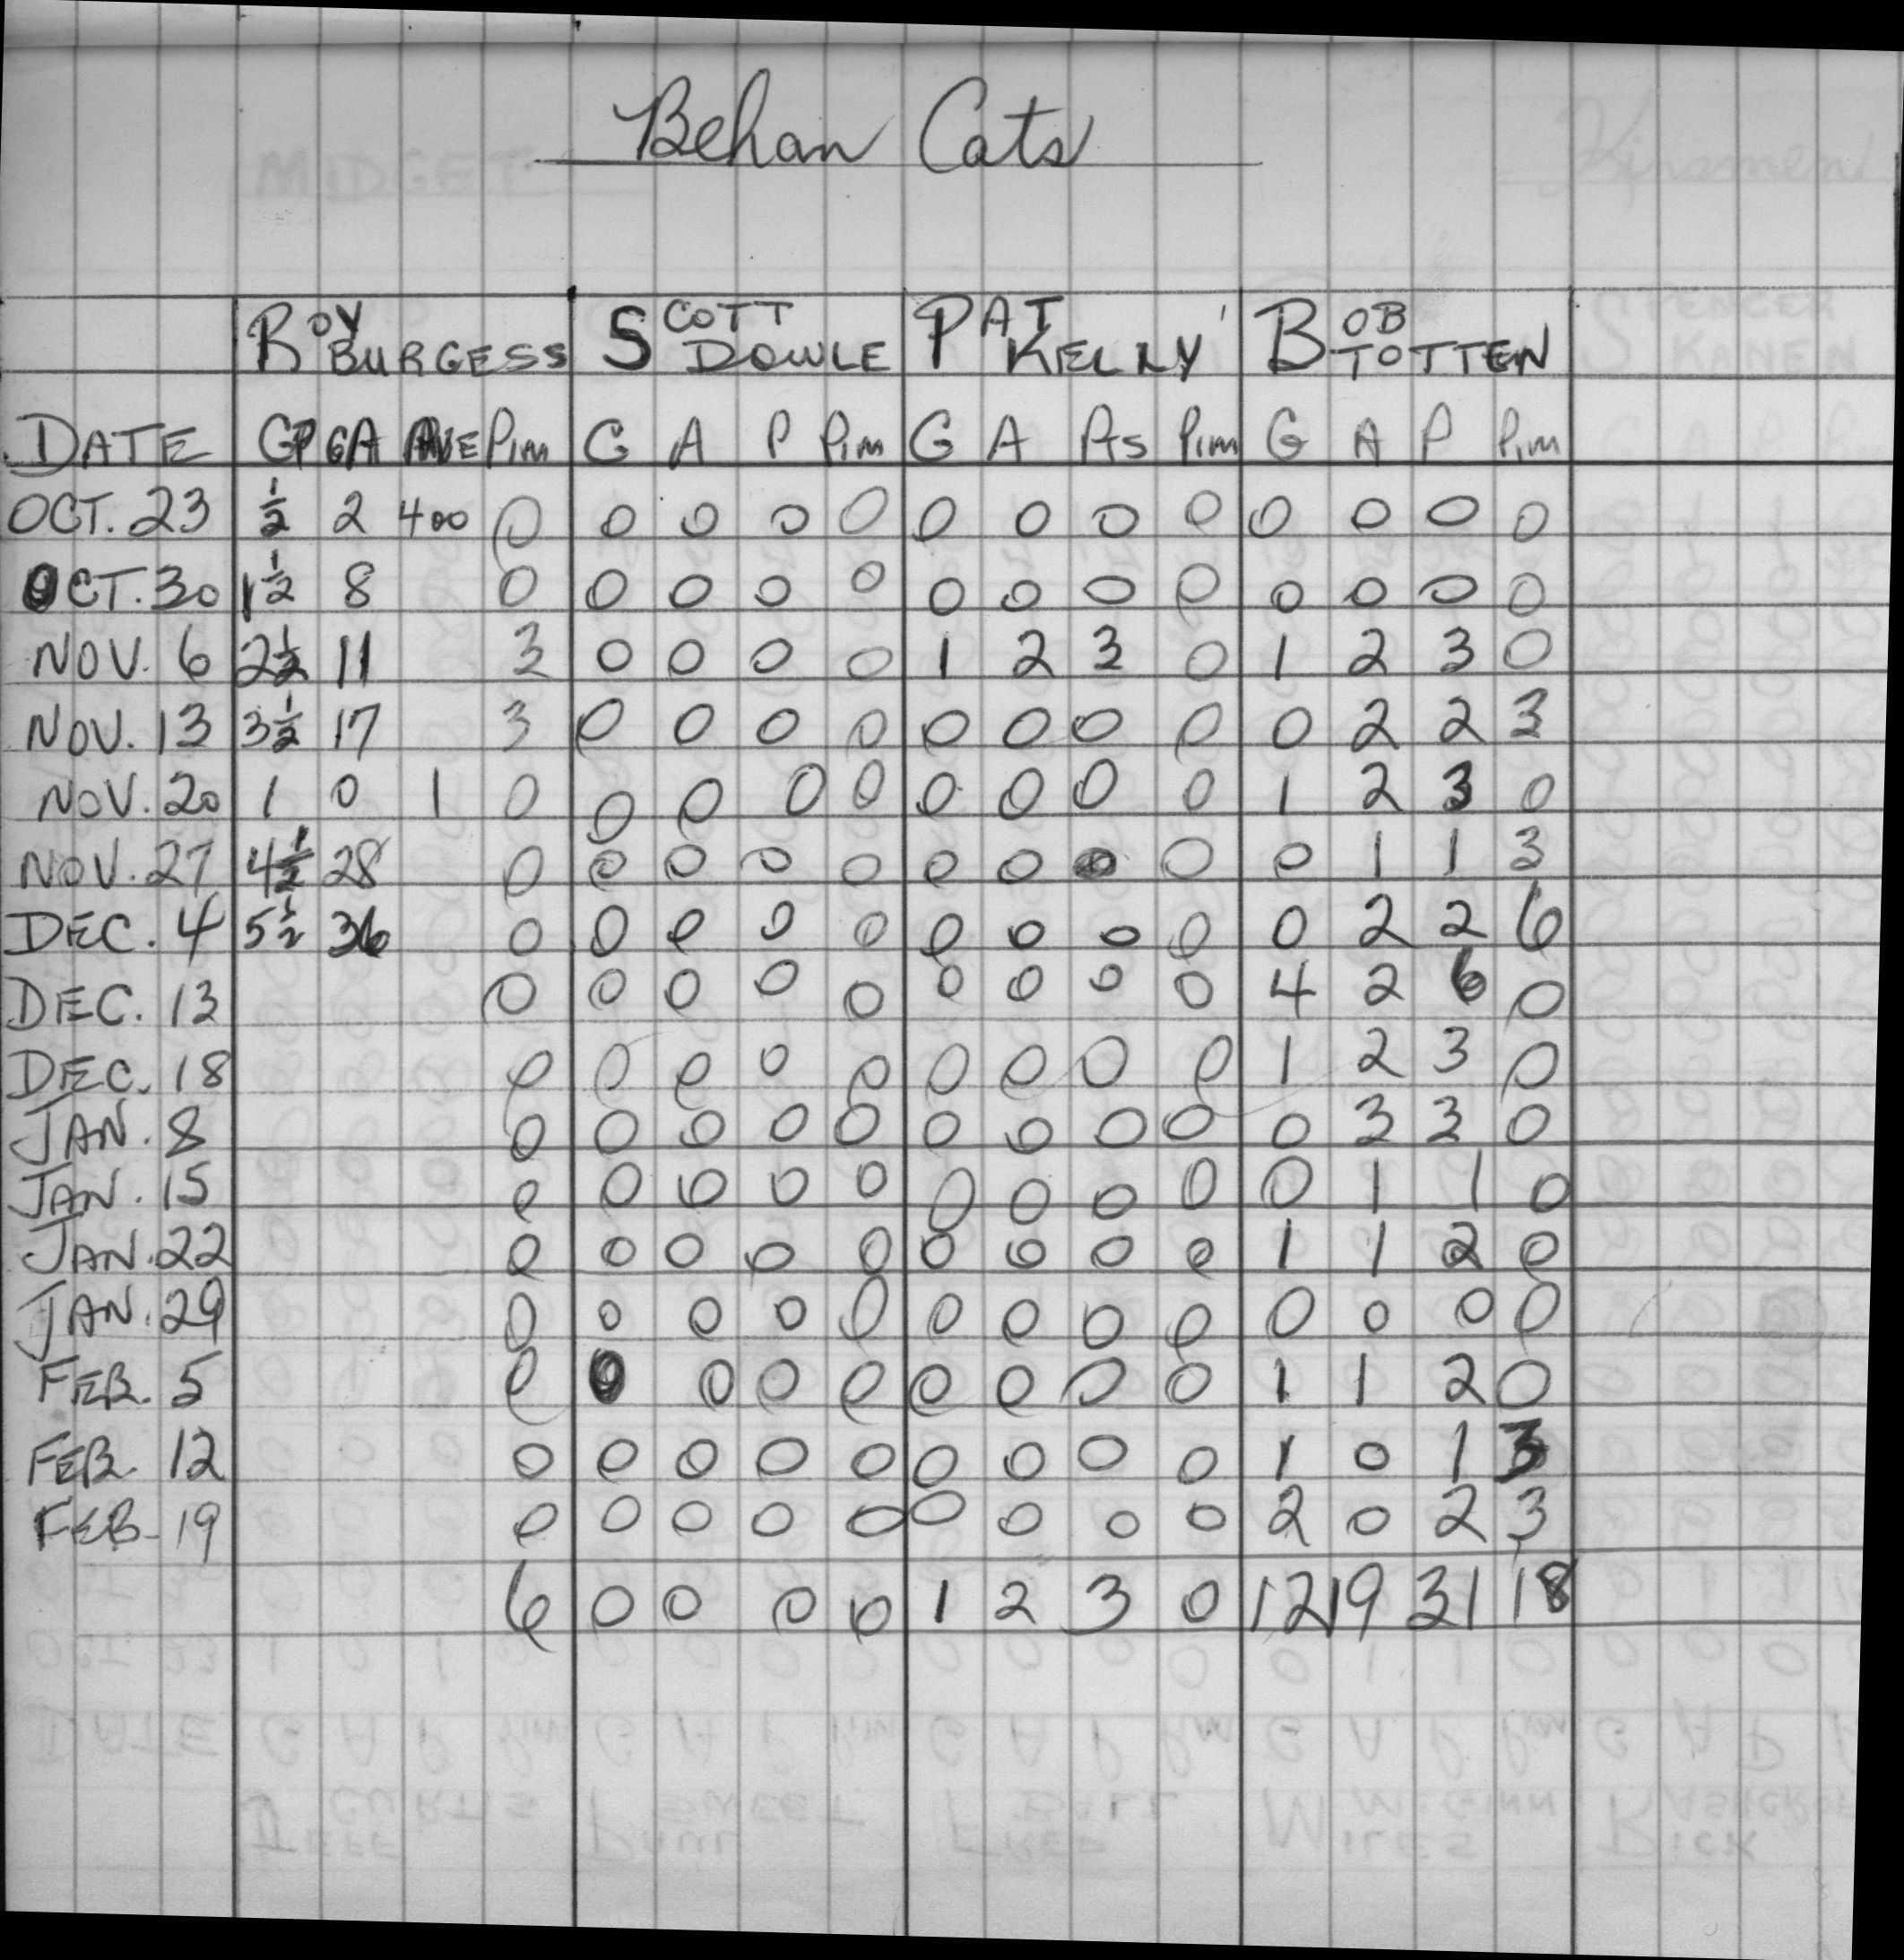 Behan Cats
ROY BURGESS SCOTT DOWLE PAT KELLY BOB TOTTEN
DATE GP GA AVE Pim G A P Pim G A Pts Pim G A P Pim
OCT. 23 ½ 2 400 0 0 0 0 0 0 0 0 0 0 0 0 0
OCT. 30 1½ 8 0 0 0 0 0 0 0 0 0 0 0 0 0
NOV. 6 2½ 11 3 0 0 0 0 1 2 3 0 1 2 3 0
NOV. 13 3½ 17 3 0 0 0 0 0 0 0 0 0 2 2 3
NOV. 20 1 0 1 0 0 0 0 0 0 0 0 0 1 2 3 0
NOV. 27 4½ 28 0 0 0 0 0 0 0 0 0 0 1 1 3
DEC. 4 5½ 36 0 0 0 0 0 0 0 0 0 0 2 2 6
DEC. 13 0 0 0 0 0 0 0 0 0 4 2 6 0
DEC. 18 0 0 0 0 0 0 0 0 0 1 2 3 0
JAN. 8 0 0 0 0 0 0 0 0 0 0 3 3 0
JAN. 15 0 0 0 0 0 0 0 0 0 0 1 1 0
JAN. 22 0 0 0 0 0 0 0 0 0 1 1 2 0
JAN. 29 0 0 0 0 0 0 0 0 0 0 0 0 0
FEB. 5 0 0 0 0 0 0 0 0 0 1 1 2 0
FEB. 12 0 0 0 0 0 0 0 0 0 1 0 1 3
FEB. 19 0 0 0 0 0 0 0 0 0 2 0 2 3
6 0 0 0 0 1 2 3 0 12 19 31 18